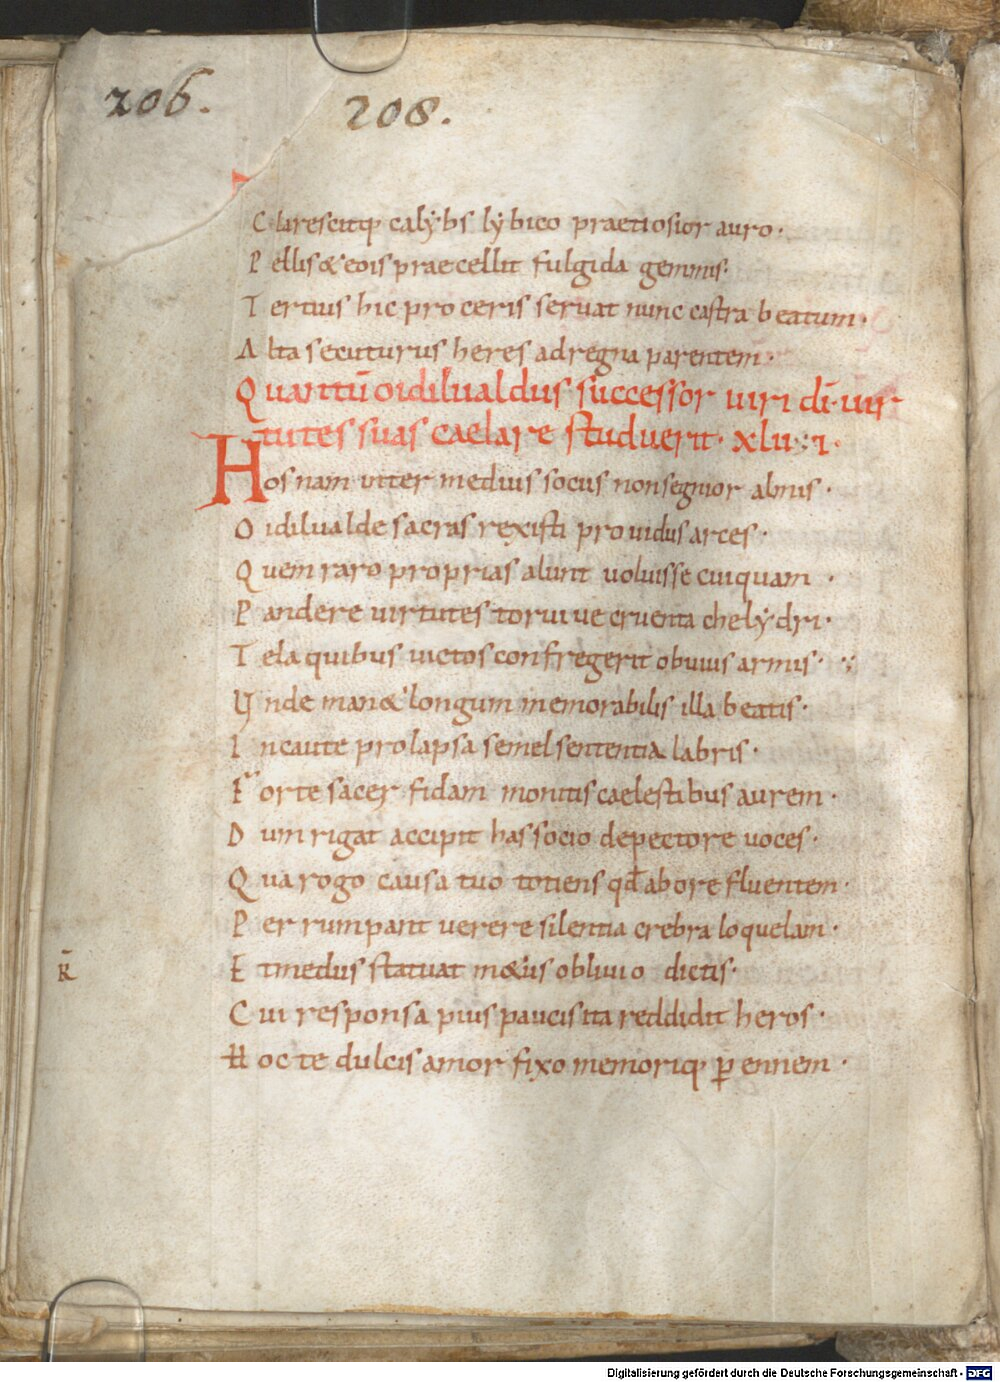 206.
208.
Clarescitq; calẏbs lẏbico praetiosior auro.
Pellis & eois praecellit fulgida gemmis:
Tertius hic proceris seruat nunc castra beatum.
Alta secuturus heres ad regna parentem.
Quantū oidilualdus successor uiri dī uir
tutes suas caelare studuerit. xlui:
Hos nam inter medius socius non segnior almis.
Oidilualde sacras rexisti prouidus arces.
Quem raro proprias aiunt uoluisse cuiquam.
Pandere uirtutes toruiue cruenta chelẏdri.
Tela quibus uictos confregerit obuius armis.
Unde man& longum memorabilis illa beatis.
Incaute prolapsa semel sententia labris.
Forte sacer fidam monitis caelestibus aurem.
Dum rigat accipit has socio de pectore uoces.
Qua rogo causa tuo totiens qđ ab ore fluentem.
Perrumpant uerere silentia crebra loquelam.
R̄
Et medus statuat m&is obliuio dictis.
Cui responsa pius paucis ita reddidit heros.
Hoc te dulcis amor fixo memoriq; p̄ennem.
Digitalisierung gefördert durch die Deutsche Forschungsgemeinschaft - DFG